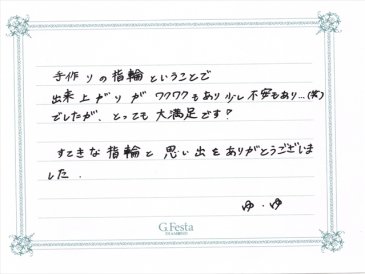 手作りの指輪ということで
出来上がりが ワクワクもあり少し不安もあり…(笑)
でしたが、とっても大満足です?
すてきな指輪と思い出をありがとうございま
した.
ゆ・ゆ
G.Festa